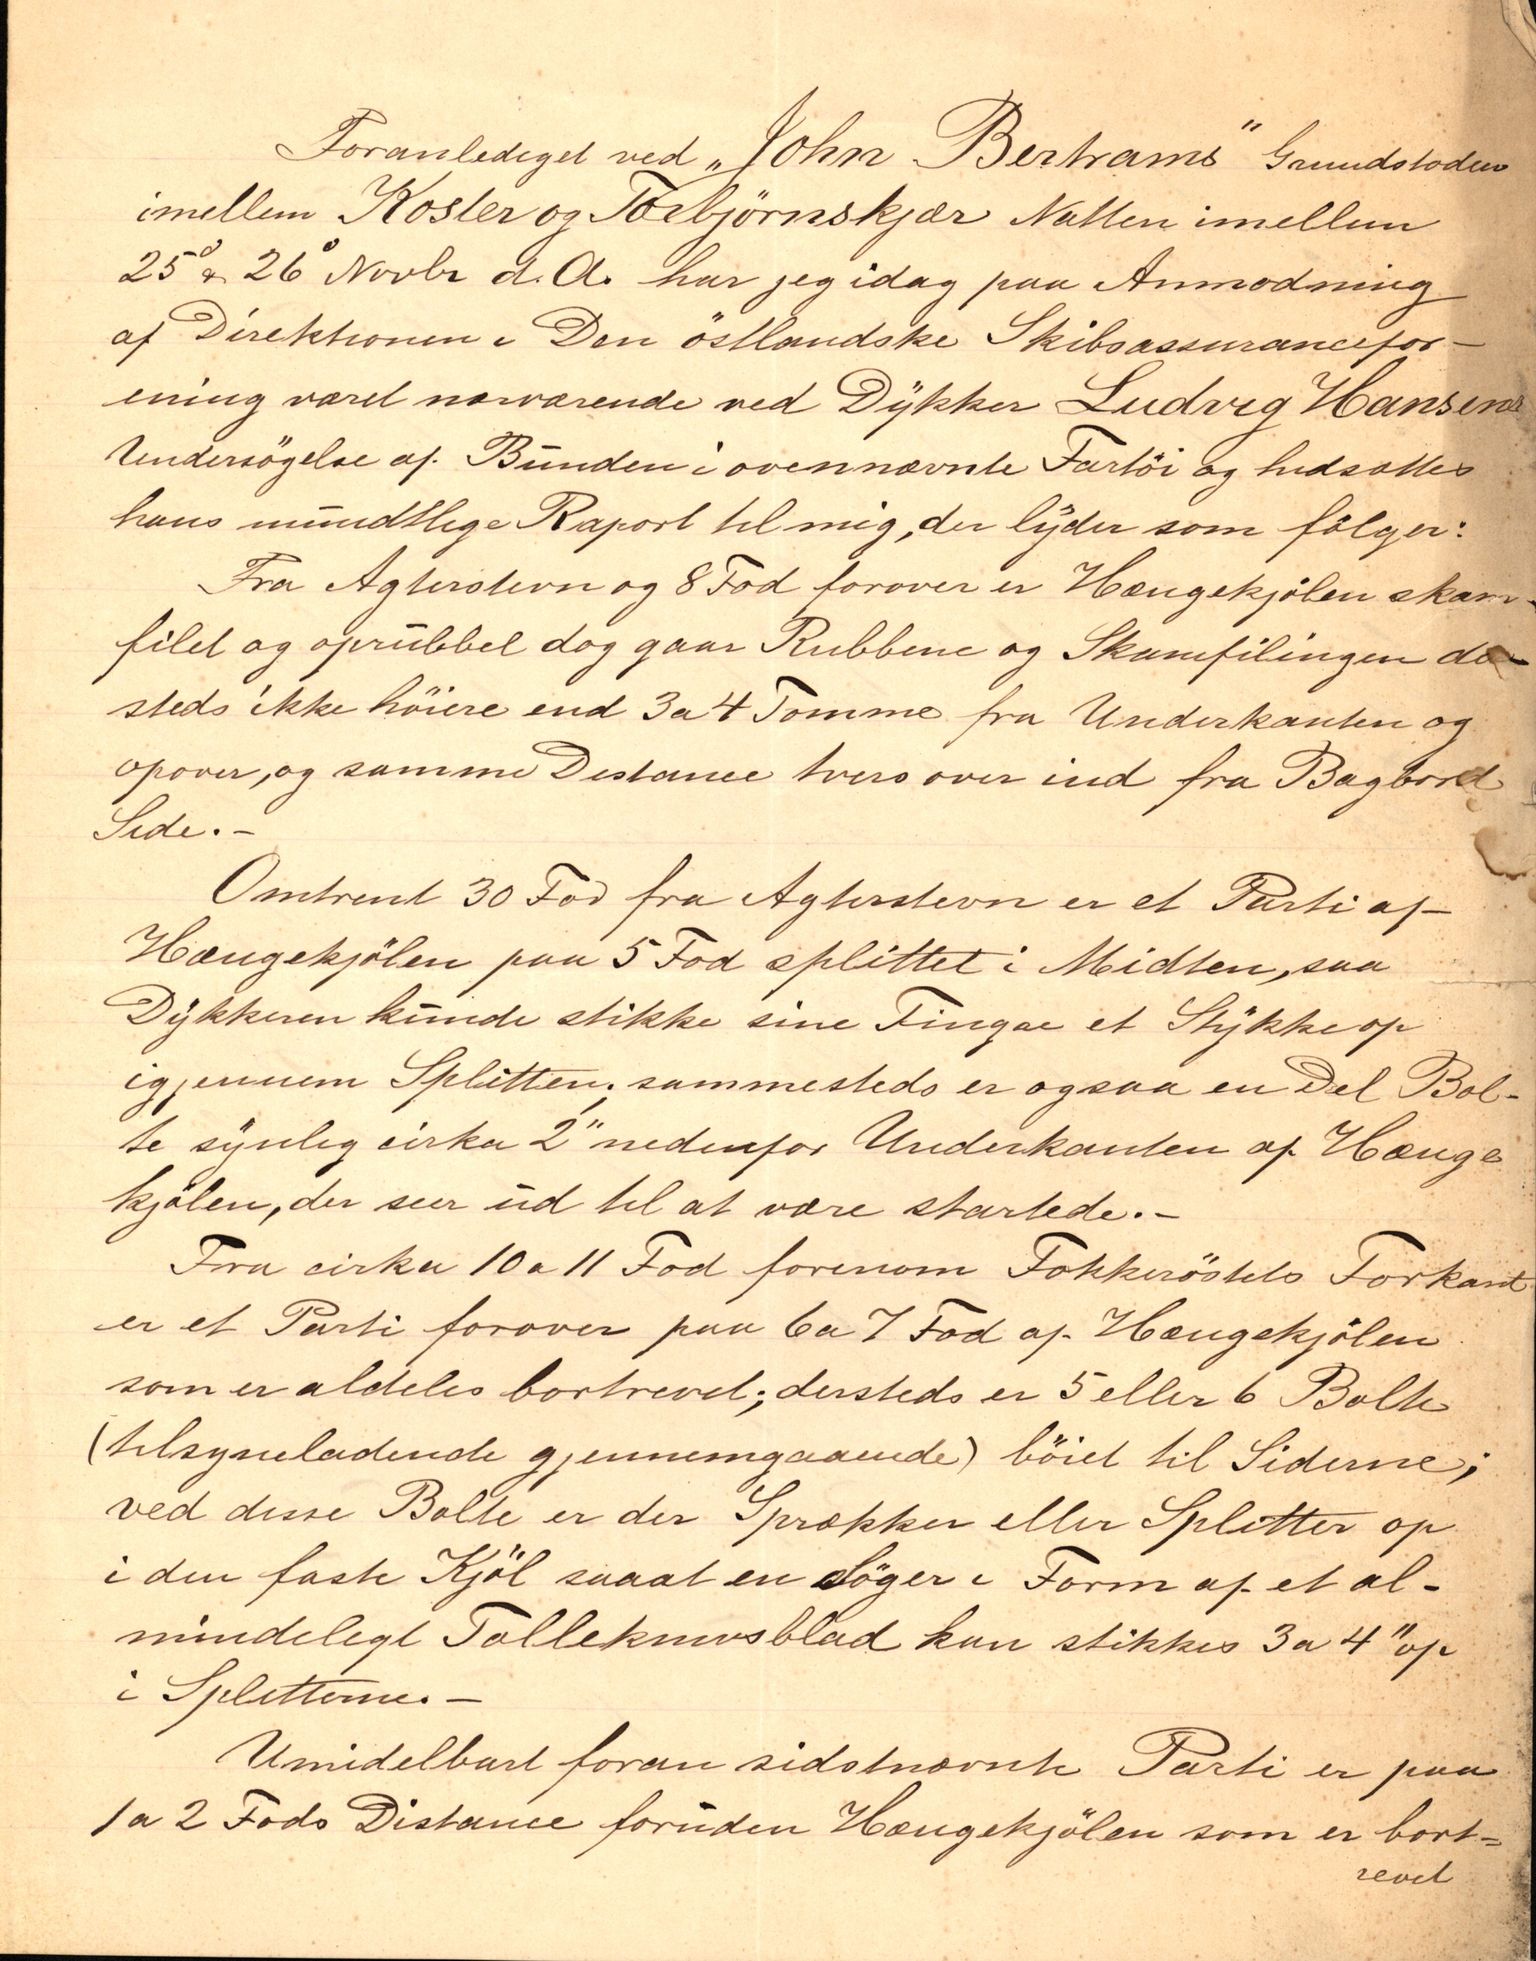 Foranlediget ved „John Bertrams" Grundstøden
imellem Koster og Torbjörnskjær Natten imellem
25° & 26° Novbr d. A. har jeg idag paa Anmodning
af Direktionen i Den östlandske Skibsassurancefor-
ening været nærværende ved Dykker Ludvig Hansens
Undersögelse af Bunden i ovennævnte Fartöi og hidsættes
hans mundtlige Raport til mig, der lyder som fölger:
Fra Agterstevn og 8 Fod forover er Hængekjölen skam-
filet og oprubbet dog gaar Rubbene og Skamfilingen der-
steds ikke höiere end 3 a 4 Tomme fra Underkanten og
opover, og samme Distance tvers over ind fra Bagbord
Side.-
Omtrent 30 Fod fra Agterstevn er et Parti af
Hængekjölen paa 5 Fod splittet i Midten, saa
Dykkeren kunde stikke sine Fingre et Stykke op
igjennem Splitten; sammesteds er ogsaa en Del Bol-
te synlig cirka 2" nedenfor Underkanten af Hænge
kjölen, der seer ud til at være startede.-
Fra cirka 10 a 11 Fod forenom Fokkeröstets Forkant
er et Parti forover paa 6 a 7 Fod af Hængekjölen
som er aldeles bortrevet; dersteds er 5 eller 6 Bolte
(tilsyneladende gjennemgaaende) böiet til Siderne;
ved disse Bolte er der Sprækker eller Splitter op
i den faste Kjöl saaat en Söger i Form af et al-
mindeligt Tolleknivsblad kan stikkes 3 a 4" op
i Splitterne.-
Umidelbart foran sidstnævnte Parti er paa
1 a 2 Fods Distance foruden Hængekjölen som er bort-
revet